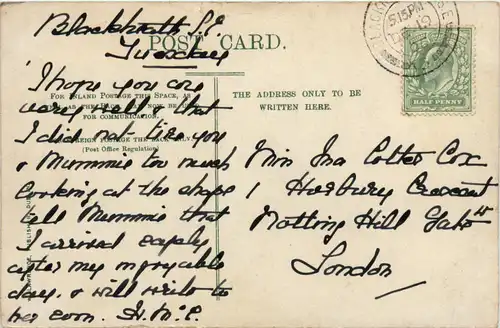 Blackheath S.E.
Tuesday
POST CARD.
5.15 PM
HALF PENNY
FOR INLAND POSTAGE THIS SPACE, AS
WELL AS THE BACK, MAY NOW BE USED
FOR COMMUNICATION.
FOREIGN POSTAGE THE BACK ONLY.
(Post Office Regulation).
THE ADDRESS ONLY TO BE
WRITTEN HERE.
I hope you are
very well & that
I did not tire you
& Mummie too much
looking at the shops
tell Mummie that
I arrived safely
after my enjoyable
day. & will write to
her soon. H.M.C.
Miss Ina Cotter Cox
1 Horbury Crescent
Notting Hill Gate W
London